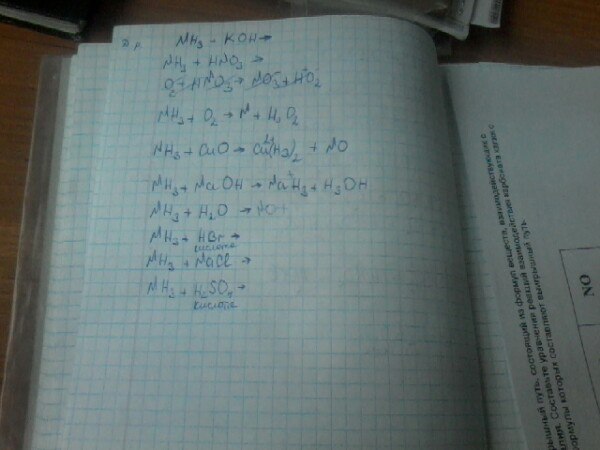 Д р.
NH3 - KOH →
NH3 + HNO3 →
O2 + HNO3 → NO3 + HO2
NH3 + O2 → N + H3O2
NH3 + CuO → Cu(H3)2 + NO
NH3 + NaOH → NaH3 + H3OH
NH3 + H2O →
NH3 + HBr →
кислота
NH3 + NaCl →
NH3 + H2SO4 →
кислота
рышный путь, состоящий из формул веществ, взаимодействующих с
Составьте уравнения реакций взаимодействия карбоната калия с
формулы которых составляют выигрышный путь.
NO